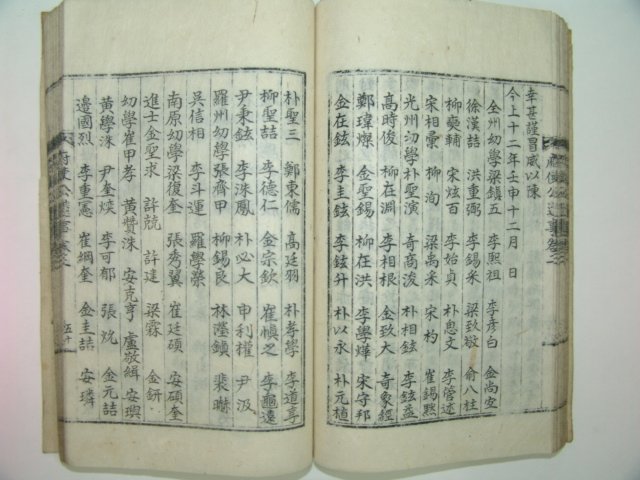 幸甚謹冒威以陳
今上十二年壬申十二月 日
全州幼學梁鎮五 李熙祖 李彦白 金尚定
徐漢喆 洪重弼 李錫采 梁致敏 俞八柱
柳奭輔 宋炫百 李始貞 朴思文 李管述
宋相彙 柳洵 梁禹采 宋杓 崔錫黙
光州幼學朴聖演 奇商浚 朴相鉉 李鉉益
高時俊 柳在澗 李相根 金致大 奇象經
鄭瑋燦 金聖錫 柳在洪 李學燁 宋守邦
金在鉉 李圭鉉 李鉉升 朴以永 朴元植
朴聖三 鄭東儒 高廷羽 朴孝學 李道亨
柳聖喆 李德仁 金宗欽 崔愼之 李龜遠
尹秉鉉 李洙鳳 朴必大 申利權 尹汲
羅州幼學張齊甲 柳錫良 林瀅鎮 裴
吳信相 李斗運 羅學榮
南原幼學梁復奎 張秀翼 崔廷碩 安碩奎
進士金聖求 許兢 許達 梁霖 金鈃
幼學崔甲孝 黃贇洙 安克亨 盧敬緝 安璵
黃學洙 尹奎煐 李可郁 張 金元喆
邊國烈 李重憲 崔綱奎 金圭喆 安璘
五十